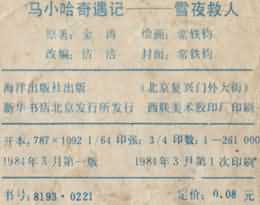 马小哈奇遇记——雪夜救人
原著：金涛 绘画：常铁钧
改编：洁浩 封面：常铁钧
海洋出版社出版 （北京复兴门外大街）
新华书店北京发行所发行 西联美术胶印厂印刷
开本，787×1092 1/64 印张：3/4 印数：1—261000
1984年3月第一版 1984年3月第1次印刷
书号：8193·0221 定价：0.08元